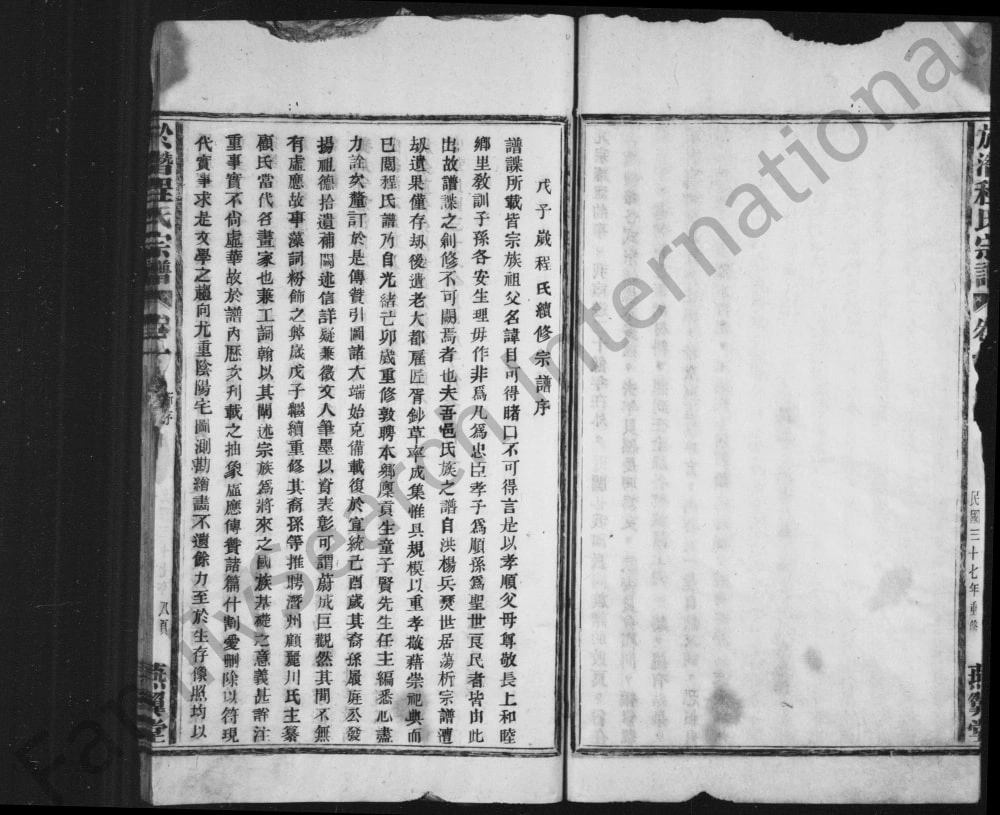 於潛程氏宗譜
民國三十七年重修
燕翼堂
戊子歲程氏續修宗譜序
譜諜所載皆宗族祖父名諱目可得睹口不可得言是以孝順父母尊敬長上和睦
鄉里敎訓子孫各安生理毋作非爲凡爲忠臣孝子爲順孫爲聖世良民者皆由此
出故譜諜之創修不可闕焉者也夫吾邑氏族之譜自洪楊兵燹世居蕩析宗譜遭
刼遺果僅存刼後遺老大都雇匠胥鈔草率成集惟具規模以重孝敬藉崇祀典而
已閱程氏譜乃自光緒己卯歲重修敦聘本鄉廩貢生童子賢先生任主編悉心盡
力詮次釐訂於是傳贊引圖諸大端始克備載復於宣統己酉歲其裔孫履庭公發
揚祖德拾遺補闕述信詳疑兼徵文人筆墨以資表彰可謂蔚成巨觀然其間不無
有虛應故事藻詞粉飾之弊歲戊子繼續重修其裔孫等推聘潛州顧麗川氏主纂
顧氏當代名畫家也兼工詞翰以其闡述宗族爲將來之國族基礎之意義甚詳注
重事實不尙虛華故於譜內歷次刋載之抽象虛應傳贊諸篇什割愛刪除以符現
代實事求是文學之趨向尤重陰陽宅圖測勘繪畵不遺餘力至於生存像照均以
於潛程氏宗譜
卷一
新序
八頁
燕翼堂